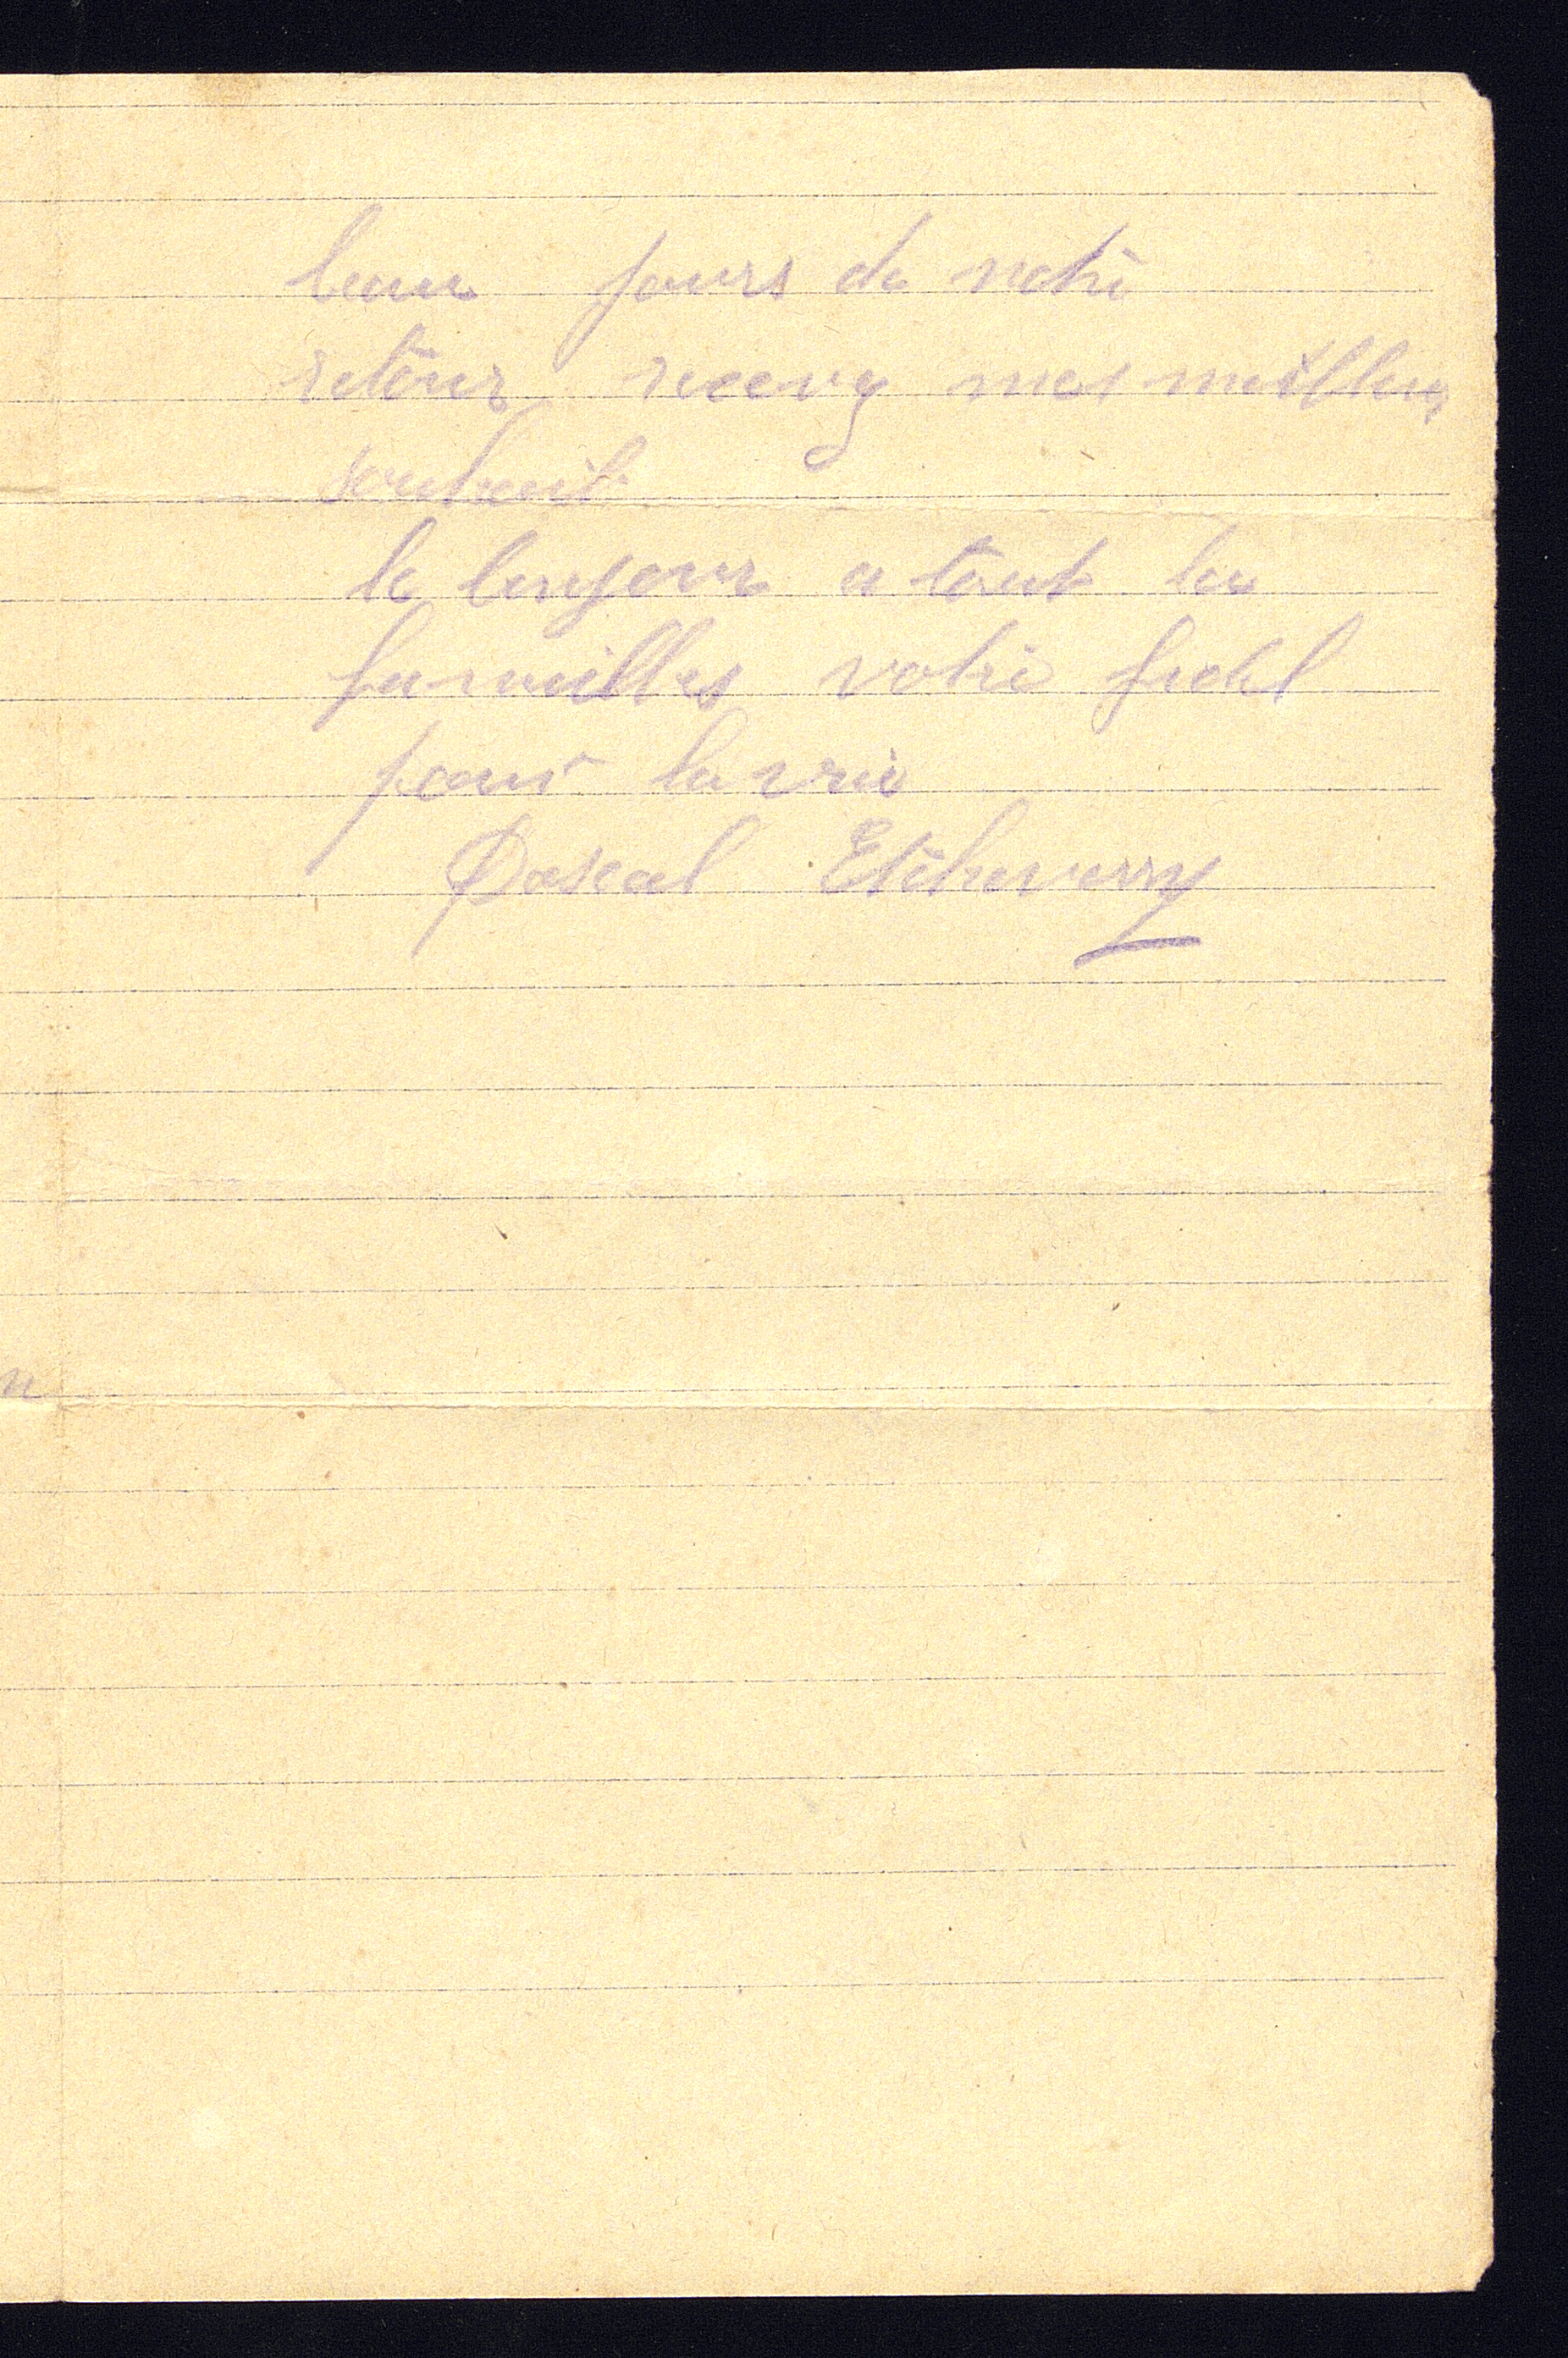 beau jours de notre
retour recevy mes meilleur
souhait
le bonjour a tout la
familles votre fidel
pour la vie
Pascal Etcheverry